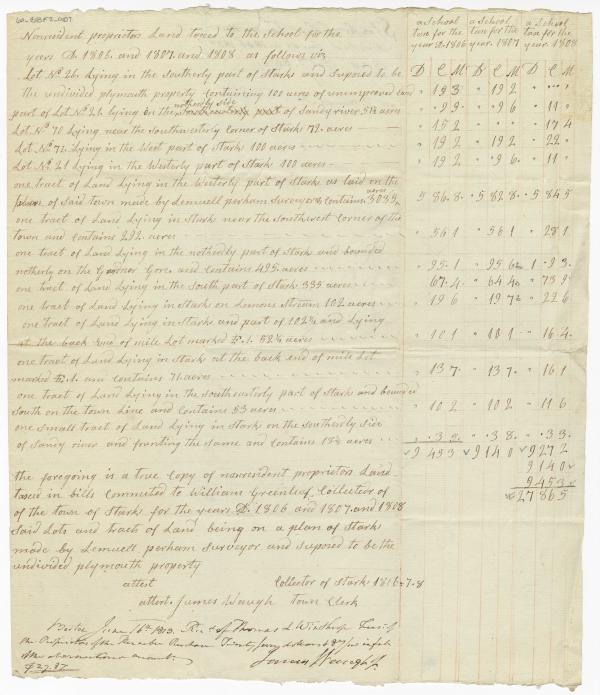 a School a School a School
tax for the tax for the tax for the
year 1806 year 1807 year 1808
Nonresident proprietors Land taxed in the School for the
years D. 1806. and 1807. and 1808 as follows viz
D C M D C M D C M
Lot No 26. Lying in the Southerly part of Starks and suposed to be
the undivided plymouth property Containing 100 acres of unimproved Land " 19 3 " 19 2
northerly side
part of Lot No 22 lying on the of Sandy river 51½ acres " .99. " .96. " 11 "
Lot No 70 Lying near the Southwesterly Corner of Stark 79. acres " 15 2 " 17 4
Lot No 72. Lying in the West part of Stark 100 acres " 19 2 " 19 2 " 22 "
Lot No 21 Lying in the Westerly part of Stark 100 acres " 19 2 " 9 6 " 11 "
one tract of Land Lying in the Westerly part of Starks as laid on the
acres
plan of said town made by Lemuell perham Surveyor & contains 3035 5 86.8 5 82 8 5 84 5
one tract of Land Lying in Stark near the Southwest Corner of the
town and Contains 292. acres " 56 1 " 56 1 " 28 1
one tract of Land Lying in the northerdly part of Stark and bounded
notherly on the Gore and Contains 495. acres " 95.1 " 95 6 1 . 93
one tract of Land Lying in the South part of Stark 335 acres " 67.4 " 64 4 " 73 9
one tract of Land Lying in Starks on Lemons Stream 102 acres " 19 6 " 19 7 " 22 6
one tract of Land Lying in Starks and part of 102¼ and Lying
at the back End of mile Lot marked F. 1. 52¼ acres " 10 1 " 10 1 " 16 4
one tract of Land Lying in Stark at the back End of mile Lot
marked E.1. and Contains 71 acres " 13 7. " 13 7. " 16 1
one tract of Land Lying in the Southesterly part of Stark and bounded
South on the town Line and Contains 53 acres " 10 2 " 10 2 " 11 6
one small tract of Land Lying in Stark on the Southerdly Side
of Sandy river and fronting the same and Contains 18½ acres " .3 8. " .3 8. " .3 3.
9 45 3 9 14 0 9 27 2
9 14 0
9 45 3
27 86 5
the foregoing is a true Copy of nonresident proprietors Land
taxed in bills Commeted to William Greenleaf, Collector of
of the town of Stark for the years D. 1806 and 1807. and 1808
Said Lots and tracts of Land being on a plan of Starks
made by Lemuell perham Surveyor and suposed to be the
undivided plymouth property
attest Collector of Stark 1806-7-8
attest. James Waugh Town Clerk
Boston June 16th Recd of Thomas L Winthrop Treasr of
the Proprietors of the Kennebec Purchase Twenty seven dollars & 87/100 in full
of the abovementioned amount.
$27.87 James Waugh Jr